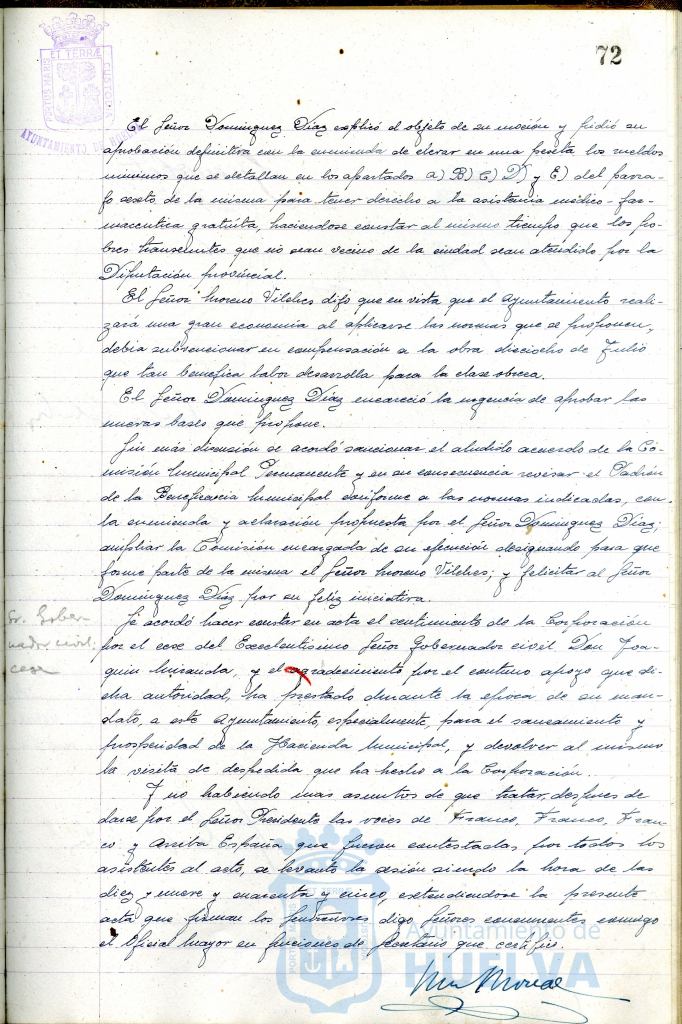 72
PORTUS MARIS ET TERRÆ CUSTODIA
AYUNTAMIENTO DE HUELVA
El Señor Dominguez Diaz explicó el objeto de su moción y pidió su
aprobación definitiva con la enmienda de elevar en una peseta los sueldos
minimos que se detallan en los apartados a) B) C) D) y E) del parra-
fo sexto de la misma para tener derecho a la asistencia médico-far-
maceutica gratuita, haciendose constar al mismo tiempo que los po-
bres transeuntes que no sean vecino de la ciudad sean atendido por la
Diputación provincial.
El Señor Moreno Vilches dijo que en vista que el Ayuntamiento reali-
zará una gran economia al aplicarse las normas que se proponen,
debia subvencionar en compensación a la obra dieciocho de Julio
que tan benefica labor desarrolla para la clase obrera.
El Señor Dominguez Diaz encareció la urgencia de aprobar las
nuevas bases que propone.
Sin más discusión se acordó sancionar el aludido acuerdo de la Co-
misión Municipal Permanente y en su consecuencia revisar el Padrón
de la Beneficencia Municipal conforme a las normas indicadas, con
la enmienda y aclaración propuesta por el Señor Dominguez Diaz;
ampliar la Comisión encargada de su ejecución designando para que
forme parte de la misma el Señor Moreno Vilches; y felicitar al Señor
Dominguez Diaz por su feliz iniciativa.
Sr. Gober-
nador civil;
cese
Se acordó hacer constar en acta el sentimiento de la Corporación
por el cese del Excelentisimo Señor Gobernador civil Don Joa-
quin Miranda, y el agradecimiento por el continuo apoyo que di-
cha autoridad, ha prestado durante la epoca de su man-
dato, a este Ayuntamiento, especialmente, para el saneamiento y
prosperidad de la Hacienda Municipal, y devolver al mismo
la visita de despedida que ha hecho a la Corporación.
Y no habiendo mas asuntos de que tratar, despues de
darse por el Señor Presidente las voces de Franco, Franco, Fran-
co y Arriba España que fueron contestadas por todos los
asistentes al acto, se levantó la sesión siendo la hora de las
diez y nueve y cuarenta y cinco, extendiendose la presente
acta que firman los digo Señores concurrentes conmigo
el Oficial Mayor en funciones de Secretario que certifico.
Ayuntamiento de
HUELVA